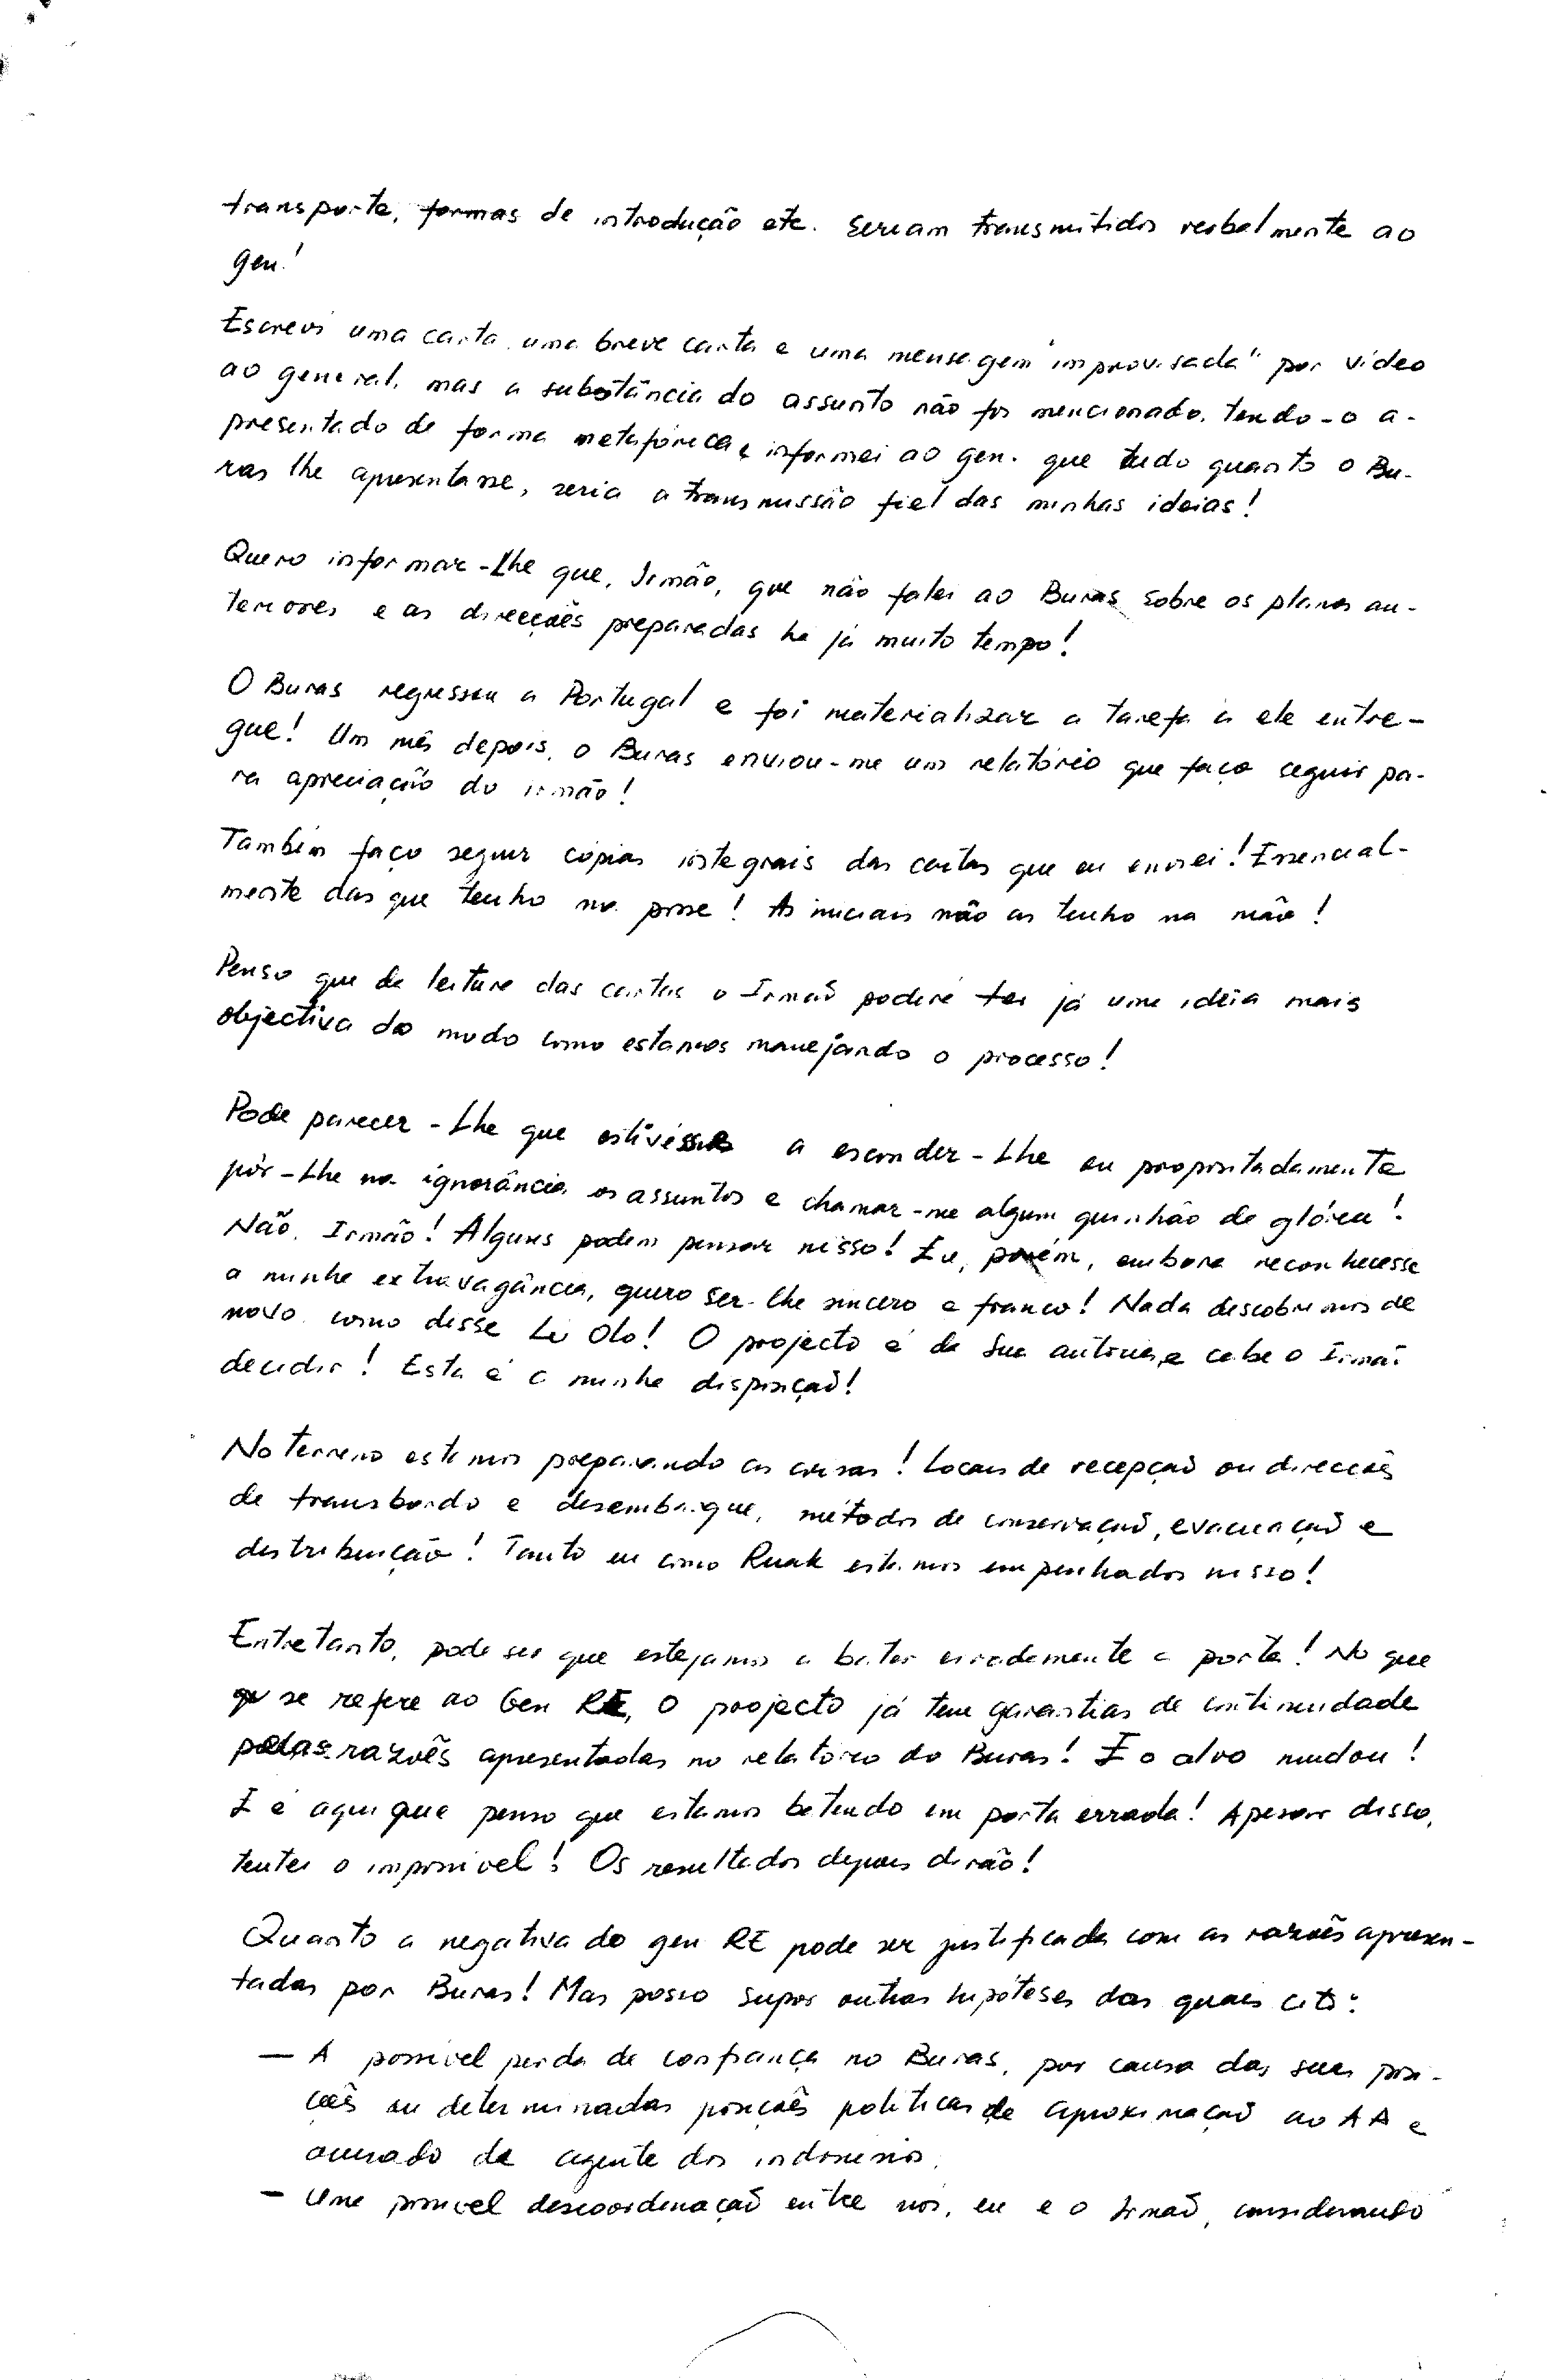 transporte, formas de introdução etc. seriam transmitidos verbalmente ao
gen.!
Escrevi uma carta, uma breve carta e uma mensagem "improvisada" por vídeo
ao general, mas a substância do assunto não foi mencionado, tendo-o a-
presentado de forma metafórica e informei ao gen. que tudo quanto o Bu-
ras lhe apresentasse, seria a transmissão fiel das minhas ideias!
Quero informar-Lhe que, Irmão, que não falei ao Buras sobre os planos an-
teriores e as direcções preparadas há já muito tempo!
O Buras regressou a Portugal e foi materializar a tarefa a ele entre-
gue! Um mês depois, o Buras enviou-me um relatório que faço seguir pa-
ra apreciação do irmão!
Também faço seguir cópias integrais das cartas que eu enviei! Essencial-
mente das que tenho na posse! As iniciais não as tenho na mão!
Penso que da leitura das cartas o Irmão poderá ter já uma idéia mais
objectiva do modo como estamos manejando o processo!
Pode parecer-Lhe que estivesse a esconder-Lhe ou propositadamente
pôr-Lhe na ignorância os assuntos e chamar-me algum quinhão de glória!
Não, Irmão! Alguns podem pensar nisso! Eu, porém, embora reconhecesse
a minha extravagância, quero ser-lhe sincero e franco! Nada descobrimos de
novo como disse Lu Olo! O projecto é da Sua autoria e cabe o Irmão
decidir! Esta é a minha disposição!
No terreno estamos preparando as coisas! Locais de recepção ou direcções
de transbordo e desembarque, métodos de conservação, evacuação e
distribuição! Tanto eu como Ruak estamos empenhados nisso!
Entretanto, pode ser que estejamos a bater erradamente a porta! No que
se refere ao Gen RE, o projecto já tem garantias de continuidade
pelas razões apresentadas no relatório do Buras! E o alvo mudou!
E é aqui que penso que estamos batendo em porta errada! Apesar disso,
tentei o impossível! Os resultados depois dirão!
Quanto a negativa do gen RE pode ser justificada com as razões apresen-
tadas por Buras! Mas posso supor outras hipóteses das quais cito:
— A possível perda de confiança no Buras, por causa das suas posi-
ções ou determinadas posições políticas de aproximação ao AA e
acusado de agente dos indonésios.
- Uma possível descoordenação entre nós, eu e o Irmão, considerando